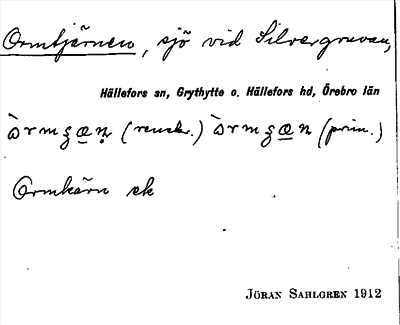 Ormtjärnen, sjö vid Silvergruvan,
Hällefors sn, Grythytte o. Hällefors hd, Örebro län
(renskr.) (prim.)
Ormkärn ek
JÖRAN SAHLGREN 1912